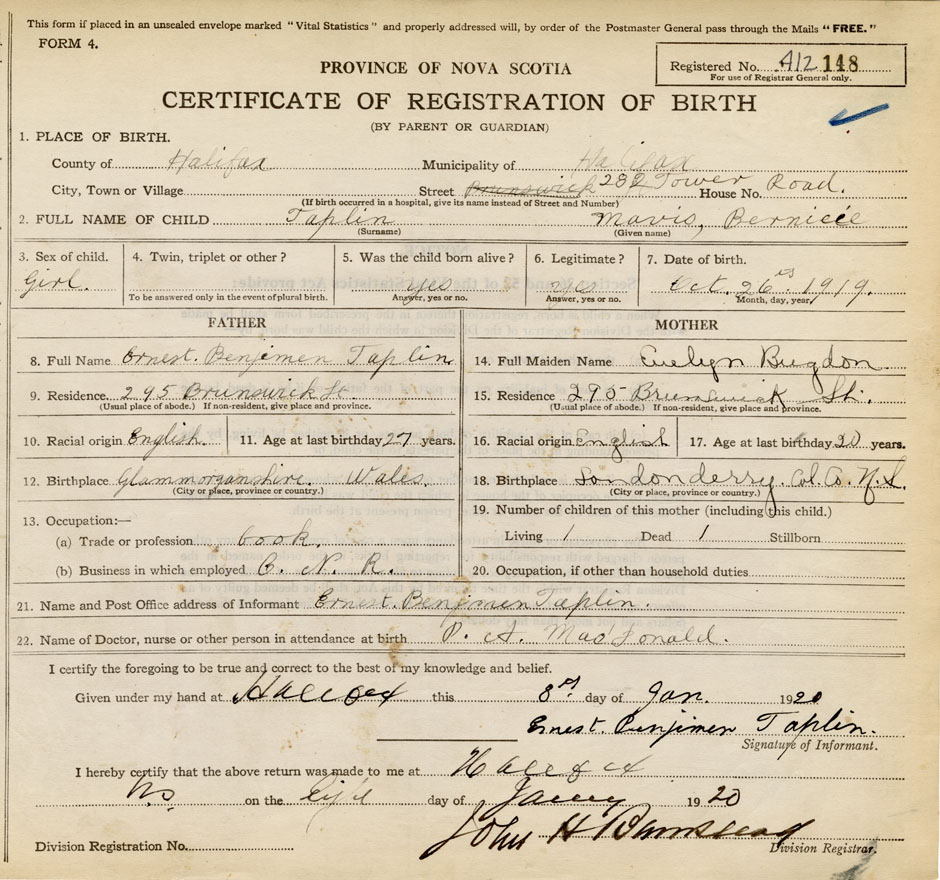 This form if placed in an unsealed envelope marked "Vital Statistics" and properly addressed will, by order of the Postmaster General pass through the Mails "FREE."
FORM 4.
Registered No. A12 148
For use of Registrar General only.
PROVINCE OF NOVA SCOTIA
CERTIFICATE OF REGISTRATION OF BIRTH
(BY PARENT OR GUARDIAN)
1. PLACE OF BIRTH.
County of Halifax Municipality of Halifax
City, Town or Village Street Brunswick 282 Tower House No. Road.
(If birth occurred in a hospital, give its name instead of Street and Number)
2. FULL NAME OF CHILD Taplin Mavis, Bernice
(Surname) (Given name)
3. Sex of child. 4. Twin, triplet or other? 5. Was the child born alive? 6. Legitimate? 7. Date of birth.
Girl. yes yes Oct. 26 1919.
To be answered only in the event of plural birth. Answer, yes or no. Answer, yes or no. Month, day, year
FATHER MOTHER
8. Full Name Ernest. Benjimen Taplin 14. Full Maiden Name Evelyn Bugdon
9. Residence 295 Brunswick St. 15. Residence 295 Brunswick St.
(Usual place of abode.) If non-resident, give place and province. (Usual place of abode.) If non-resident, give place and province.
10. Racial origin English. 11. Age at last birthday 27 years. 16. Racial origin English 17. Age at last birthday 20 years.
12. Birthplace Glammorganshire. Wales. 18. Birthplace Londonderry. Col. Co. N.S.
(City or place, province or country.) (City or place, province or country.)
13. Occupation:— 19. Number of children of this mother (including this child.)
(a) Trade or profession cook. Living 1 Dead 1 Stillborn
(b) Business in which employed C. N. R. 20. Occupation, if other than household duties
21. Name and Post Office address of Informant Ernest. Benjimen Taplin.
22. Name of Doctor, nurse or other person in attendance at birth P. A. MacDonald.
I certify the foregoing to be true and correct to the best of my knowledge and belief.
Given under my hand at Halifax this 8 day of Jan. 1920
Ernest. Benjimen Taplin.
Signature of Informant.
I hereby certify that the above return was made to me at Halifax
N.S. on the day of 1920
John H
Division Registration No. Division Registrar.